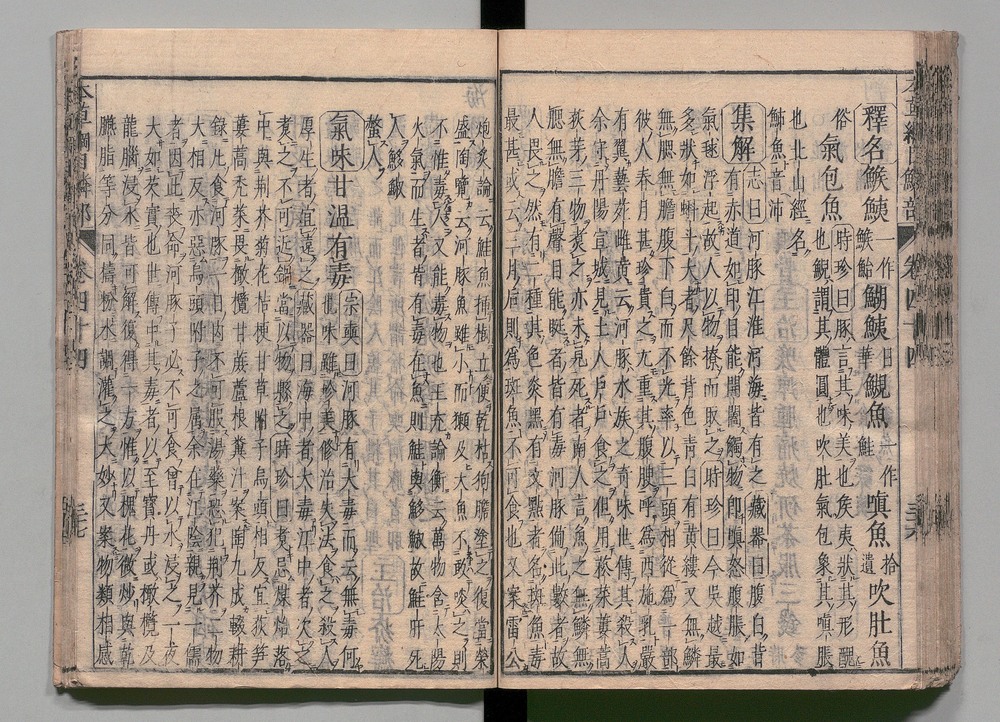 釋名鯸鮧一作鯸鮐鰗鮧日華鯢魚一作鮭嗔魚拾遺吹肚魚
俗氣包魚時珍曰豚言其味美也侯夷狀其形醜
也鯢謂其體圓也吹肚氣包象其嗔脹
也北山經名
鯡魚音沛
集解志曰河豚江淮河海皆有之藏器曰腹白背
有赤道如印目能開闔觸物即嗔怒腹脹如
氣毬浮起故人以物撩而取之時珍曰今吳越最
多狀如蝌斗大者尺餘背色青白有黃縷又無鱗
無腮無膽腹下白而不光率以三頭相從為一部
彼人春月甚珍貴之尤重其腹腴呼為西施乳嚴
有翼藝苑雌黃云河豚水族之奇味世傳其殺人
余守丹陽宣城見土人戶戶食之但用菘菜蔞蒿
荻芽三物煑之亦未見死者南人言魚之無鱗無
腮無膽有聲目能眨者皆有毒河豚備此數者故
人畏之然有二種其色炎黑有文點者名斑魚毒
最甚或云三月后則為斑魚不可食也又案雷公
炮炙論云鮭魚插樹立便乾枯狗膽塗之復當榮
盛御覽云河豚魚雖小而獺及大魚不敢啖之則
不惟毒人又能毒物也王充論衡云萬物含太陽
火氣而生者皆有毒在魚則鮭與鮗䱾故鮭肝死
人鮗䱾
螫人
氣味甘溫有毒宗奭曰河豚有大毒而云無毒何
也味雖珍美修治失法食之殺人
厚生者宜遠之藏器曰海中者大毒江中者次之
煑之不可近鐺當以物懸之時珍曰煑忌煤炲落
中與荊芥菊花桔梗甘草附子烏頭相反宜荻笋
蔞蒿禿菜畏橄欖甘蔗蘆根糞汁案陶九成輟耕
錄凡食河豚一日內不可服湯藥恐犯荊芥二物
大相反亦惡烏頭附子之屬余在江陰親見一儒
者因此喪命河豚子必不可食曾以水浸之一夜
大如芡實也世傳中其毒者以至寶丹或橄欖及
龍腦浸水皆可解復得一方惟以槐花微炒與乾
臙脂等分同搗粉水調灌之大妙又案物類相感